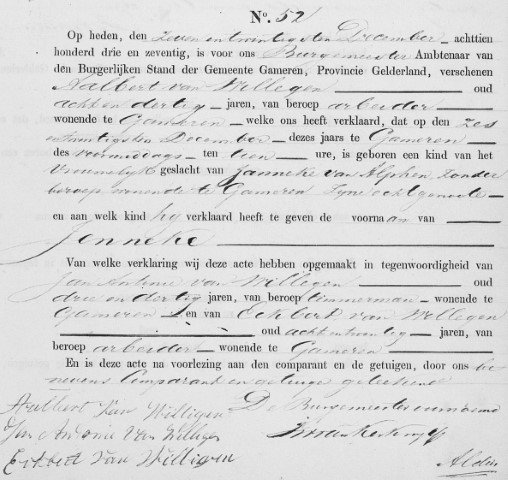 No. 52
Op heden, den zeven en twintigsten December achttien
honderd drie en zeventig, is voor ons Burgemeester Ambtenaar van
den Burgerlijken Stand der Gemeente Gameren, Provincie Gelderland, verschenen
Aalbert van Willegen oud
acht en dertig jaren, van beroep arbeider
wonende te Gameren welke ons heeft verklaard, dat op den zes
en twintigsten December dezes jaars te Gameren
des voormiddags ten tien ure, is geboren een kind van het
Vrouwelijk geslacht van Janneke van Alphen zonder
beroep wonende te Gameren zijne echtgenoote
en aan welk kind hij verklaard heeft te geven de voornaam van
Jenneke
Van welke verklaring wij deze acte hebben opgemaakt in tegenwoordigheid van
Jan Antonie van Willegen oud
drie en dertig jaren, van beroep timmerman wonende te
Gameren en van Eckbert van Willegen
oud acht en twintig jaren, van
beroep arbeider wonende te Gameren
En is deze acte na voorlezing aan den comparant en de getuigen, door ons be
nevens Comparant en getuige geteekend
Aalbert Van Willigen De Burgemeester voornoemd
Jan Antonie Van Willigen
Eckbert Van Willigen